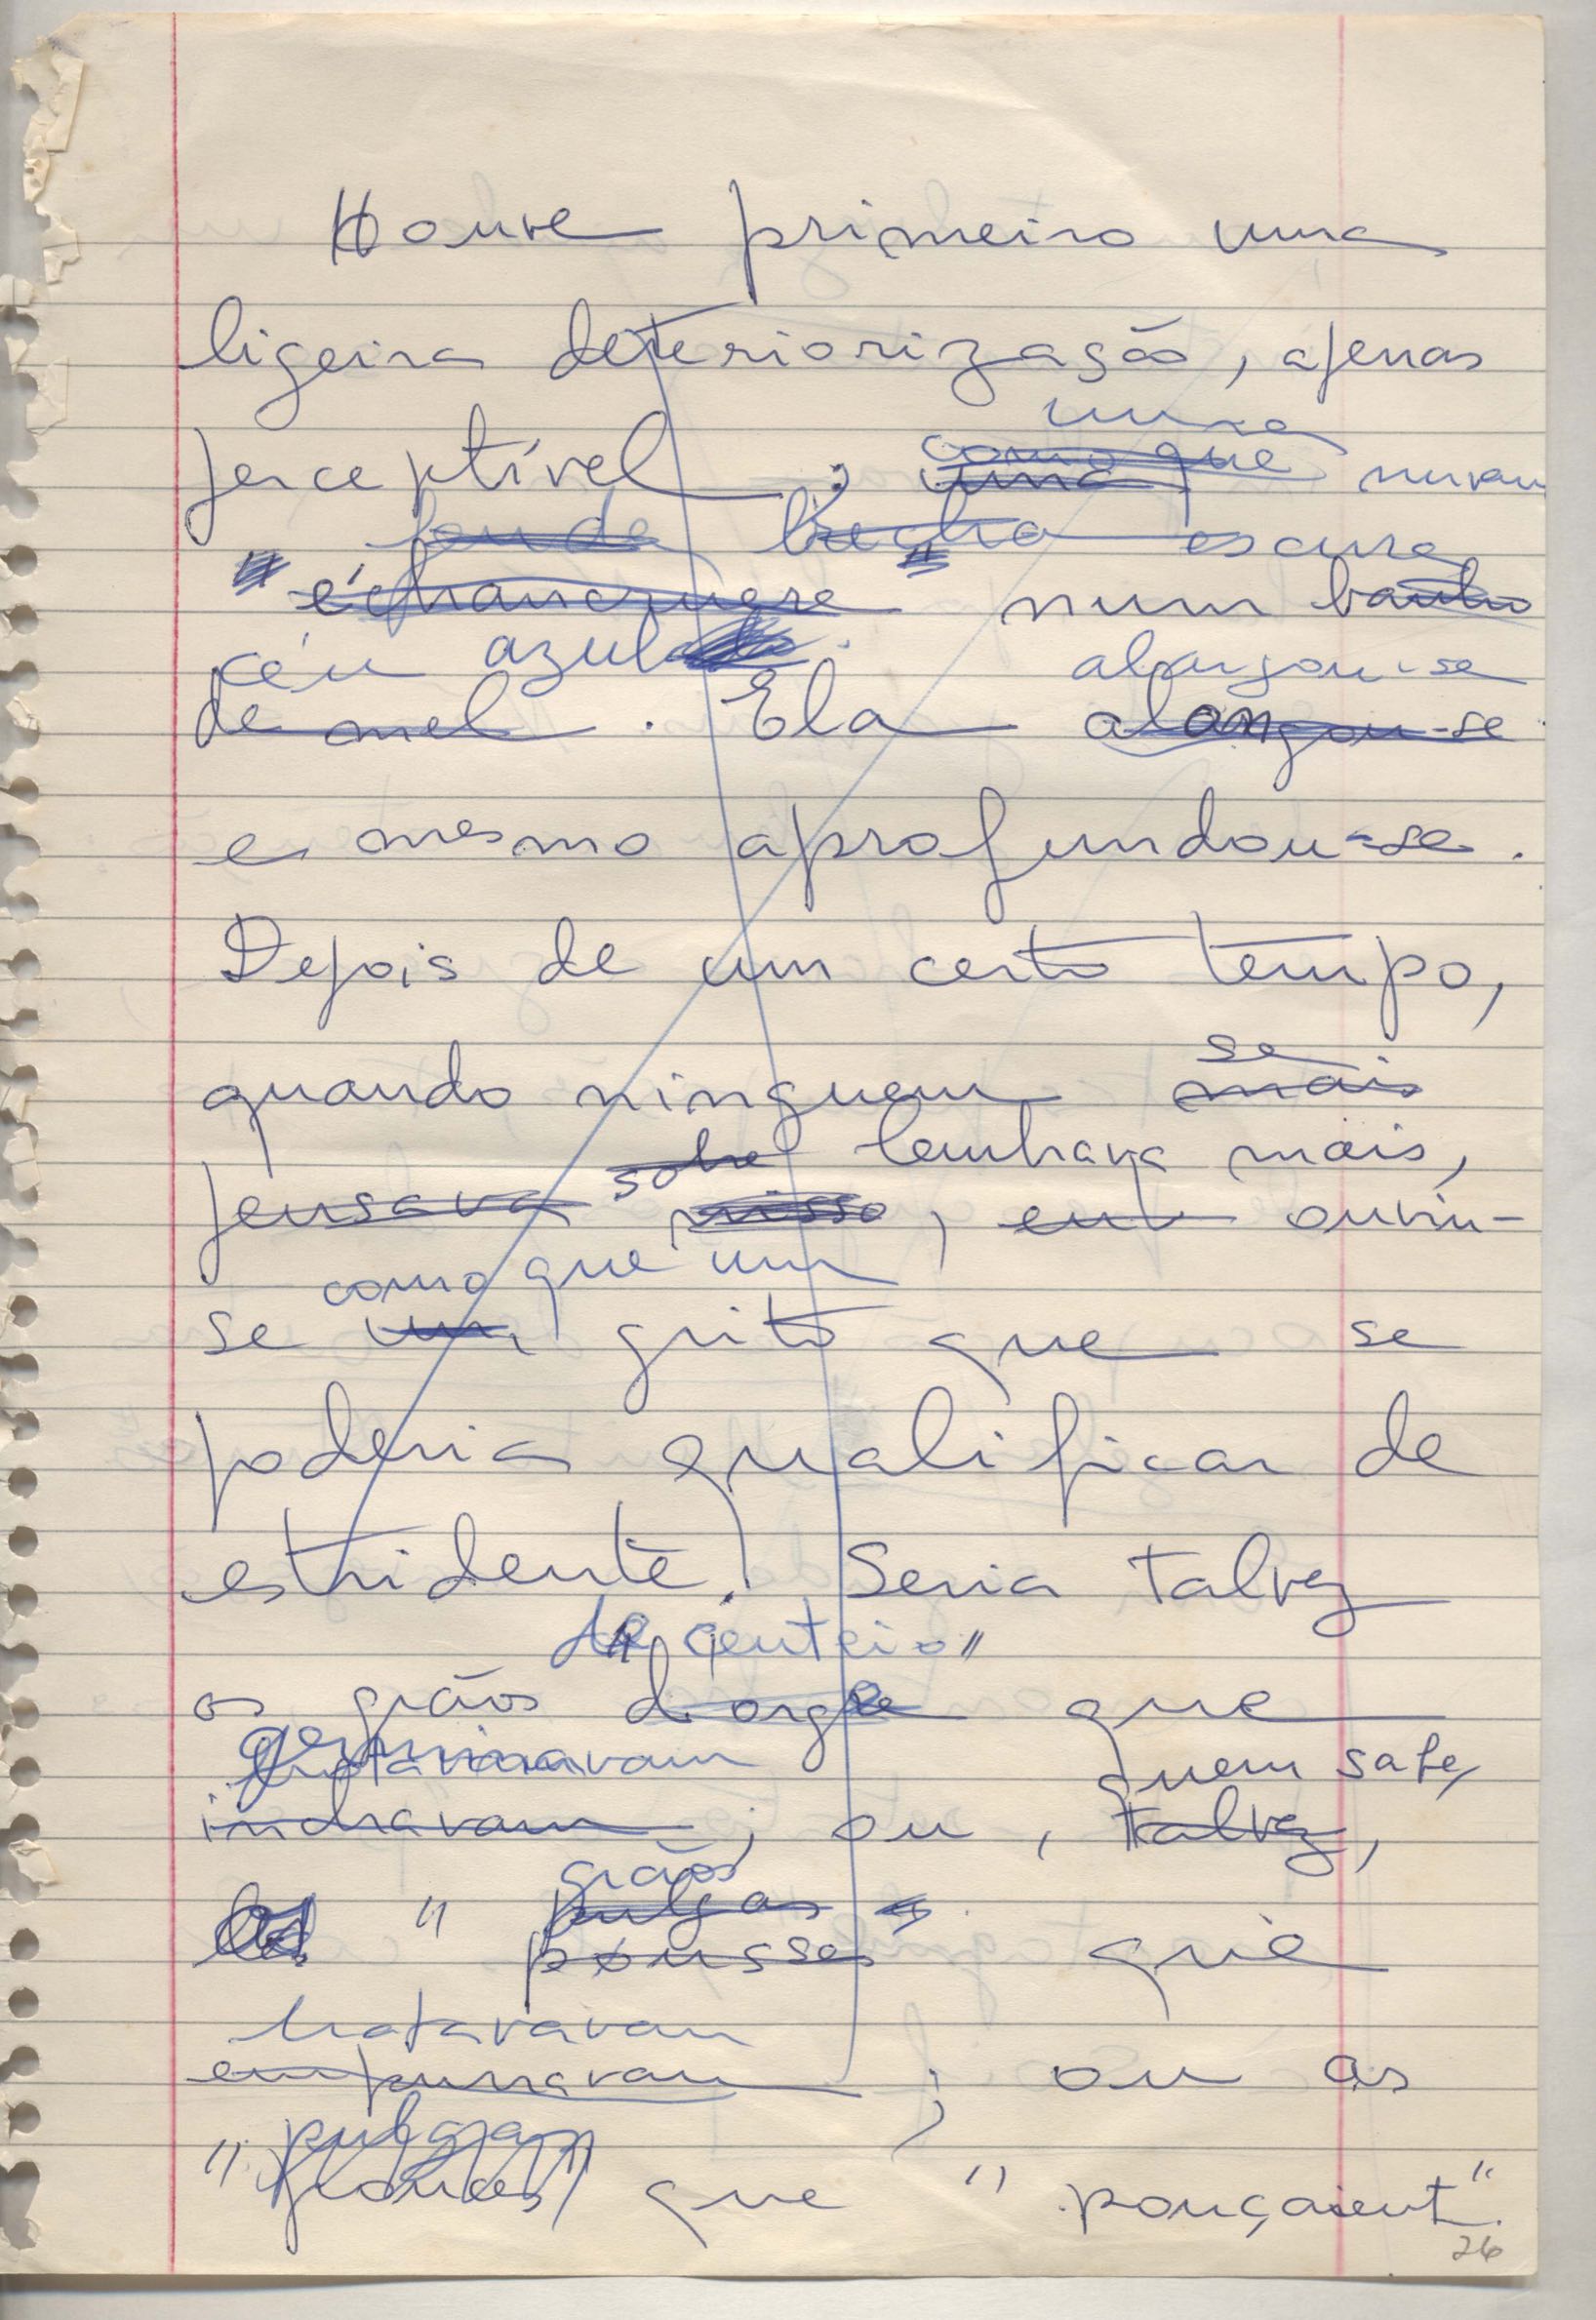 Houve primeiro uma
ligeira deteriorização, apenas
uma
perceptível ; como que uma
fenda brecha escura
"échancrure" num banho
céu azul. alargou-se
de mel. Ela alongou-se
e mesmo aprofundou-se.
Depois de um certo tempo,
se
quando ninguem mais
sobre lembrava mais,
pensava nisso, eu ouviu-
como que um
se um grito que se
poderia qualificar de
estridente. Seria talvez
de "centeio"
os grãos d'orge que
germinavam quem sabe,
inchavam ; ou, talvez,
grãos
" pulgas
pousses" que
brotavavam
empurravam ; ou as
pulgas
" que "pouçaient".
26